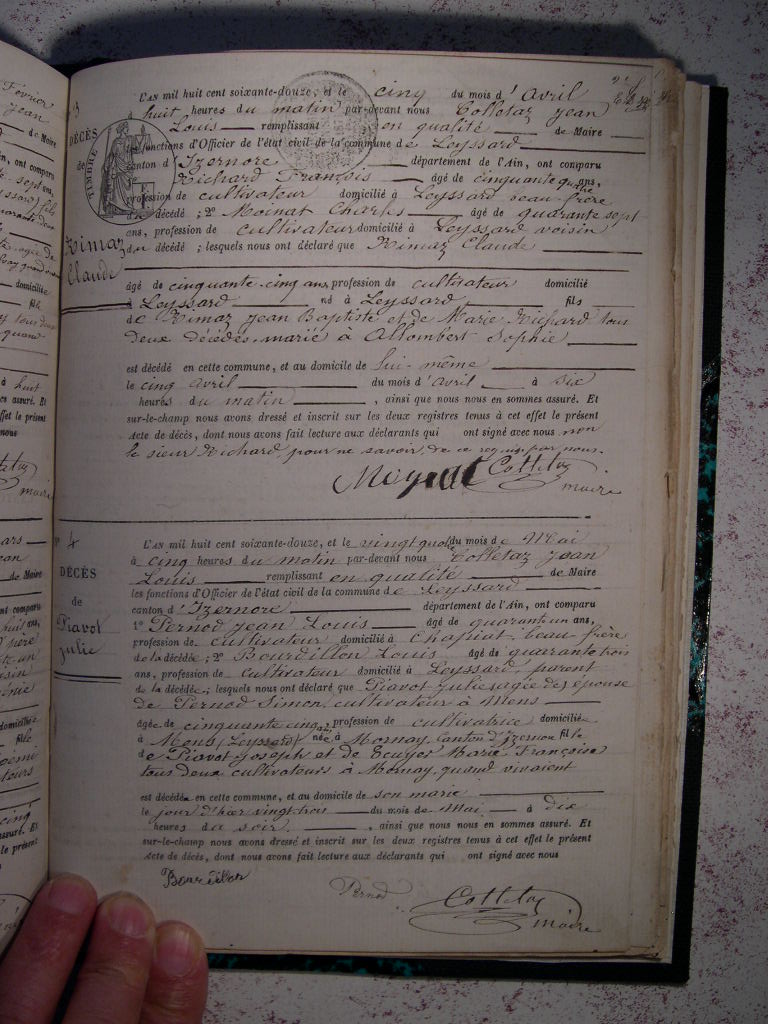 DÉCÈS
de
Rimaz
Claude
TIMBRE
L'AN mil huit cent soixante-douze, et le cinq du mois d'Avril
à huit heures du matin par-devant nous Colletaz Jean
Louis remplissant en qualité de Maire
les fonctions d'Officier de l'état civil de la commune de Leyssard
canton d'Izernore département de l'Ain, ont comparu
Richard François âgé de cinquante quatre ans,
profession de cultivateur domicilié à Leyssard beau-frère
du décédé ; 2° Moinat Charles âgé de quarante sept
ans, profession de cultivateur domicilié à Leyssard voisin
du décédé ; lesquels nous ont déclaré que Rimaz Claude
âgé de cinquante-cinq ans, profession de cultivateur domicilié
à Leyssard né à Leyssard, fils
de Rimaz Jean Baptiste et de Marie Richard tous
deux décédés, marié à Allombert Sophie
est décédé en cette commune, et au domicile de lui-même
le cinq avril du mois d'avril à six
heures du matin, ainsi que nous nous en sommes assuré. Et
sur-le-champ nous avons dressé et inscrit sur les deux registres tenus à cet effet le présent
Acte de décès, dont nous avons fait lecture aux déclarants qui ont signé avec nous non
le sieur Richard pour ne savoir, de ce requis par nous.
Colletaz
maire
N° 4
DÉCÈS
de
Piavot
Julie
L'AN mil huit cent soixante-douze, et le vingt quatre du mois de Mai
à cinq heures du matin par-devant nous Colletaz Jean
Louis remplissant en qualité de Maire
les fonctions d'Officier de l'état civil de la commune de Leyssard
canton d'Izernore département de l'Ain, ont comparu
1° Pernod Jean Louis âgé de quarante un ans,
profession de cultivateur domicilié à Chapiat, beau-frère
de la décédée ; 2° Bourdillon Louis âgé de quarante trois
ans, profession de cultivateur domicilié à Leyssard, parent
de la décédée ; lesquels nous ont déclaré que Piavot Julie épouse
de Pernod Simon, cultivateur à Mens
âgée de cinquante cinq ans, profession de cultivatrice domiciliée
à Mens (Leyssard) née à Mornay, Canton d'Izernore fille
de Piavot Joseph et de Ecuyer Marie Françoise
tous deux cultivateurs à Mornay, quand vivaient
est décédée en cette commune, et au domicile de son marie
le jour d'hier vingt trois du mois de Mai à dix
heures du soir, ainsi que nous nous en sommes assuré. Et
sur-le-champ nous avons dressé et inscrit sur les deux registres tenus à cet effet le présent
Acte de décès, dont nous avons fait lecture aux déclarants qui ont signé avec nous
Bourdillon
Pernod
Colletaz
maire